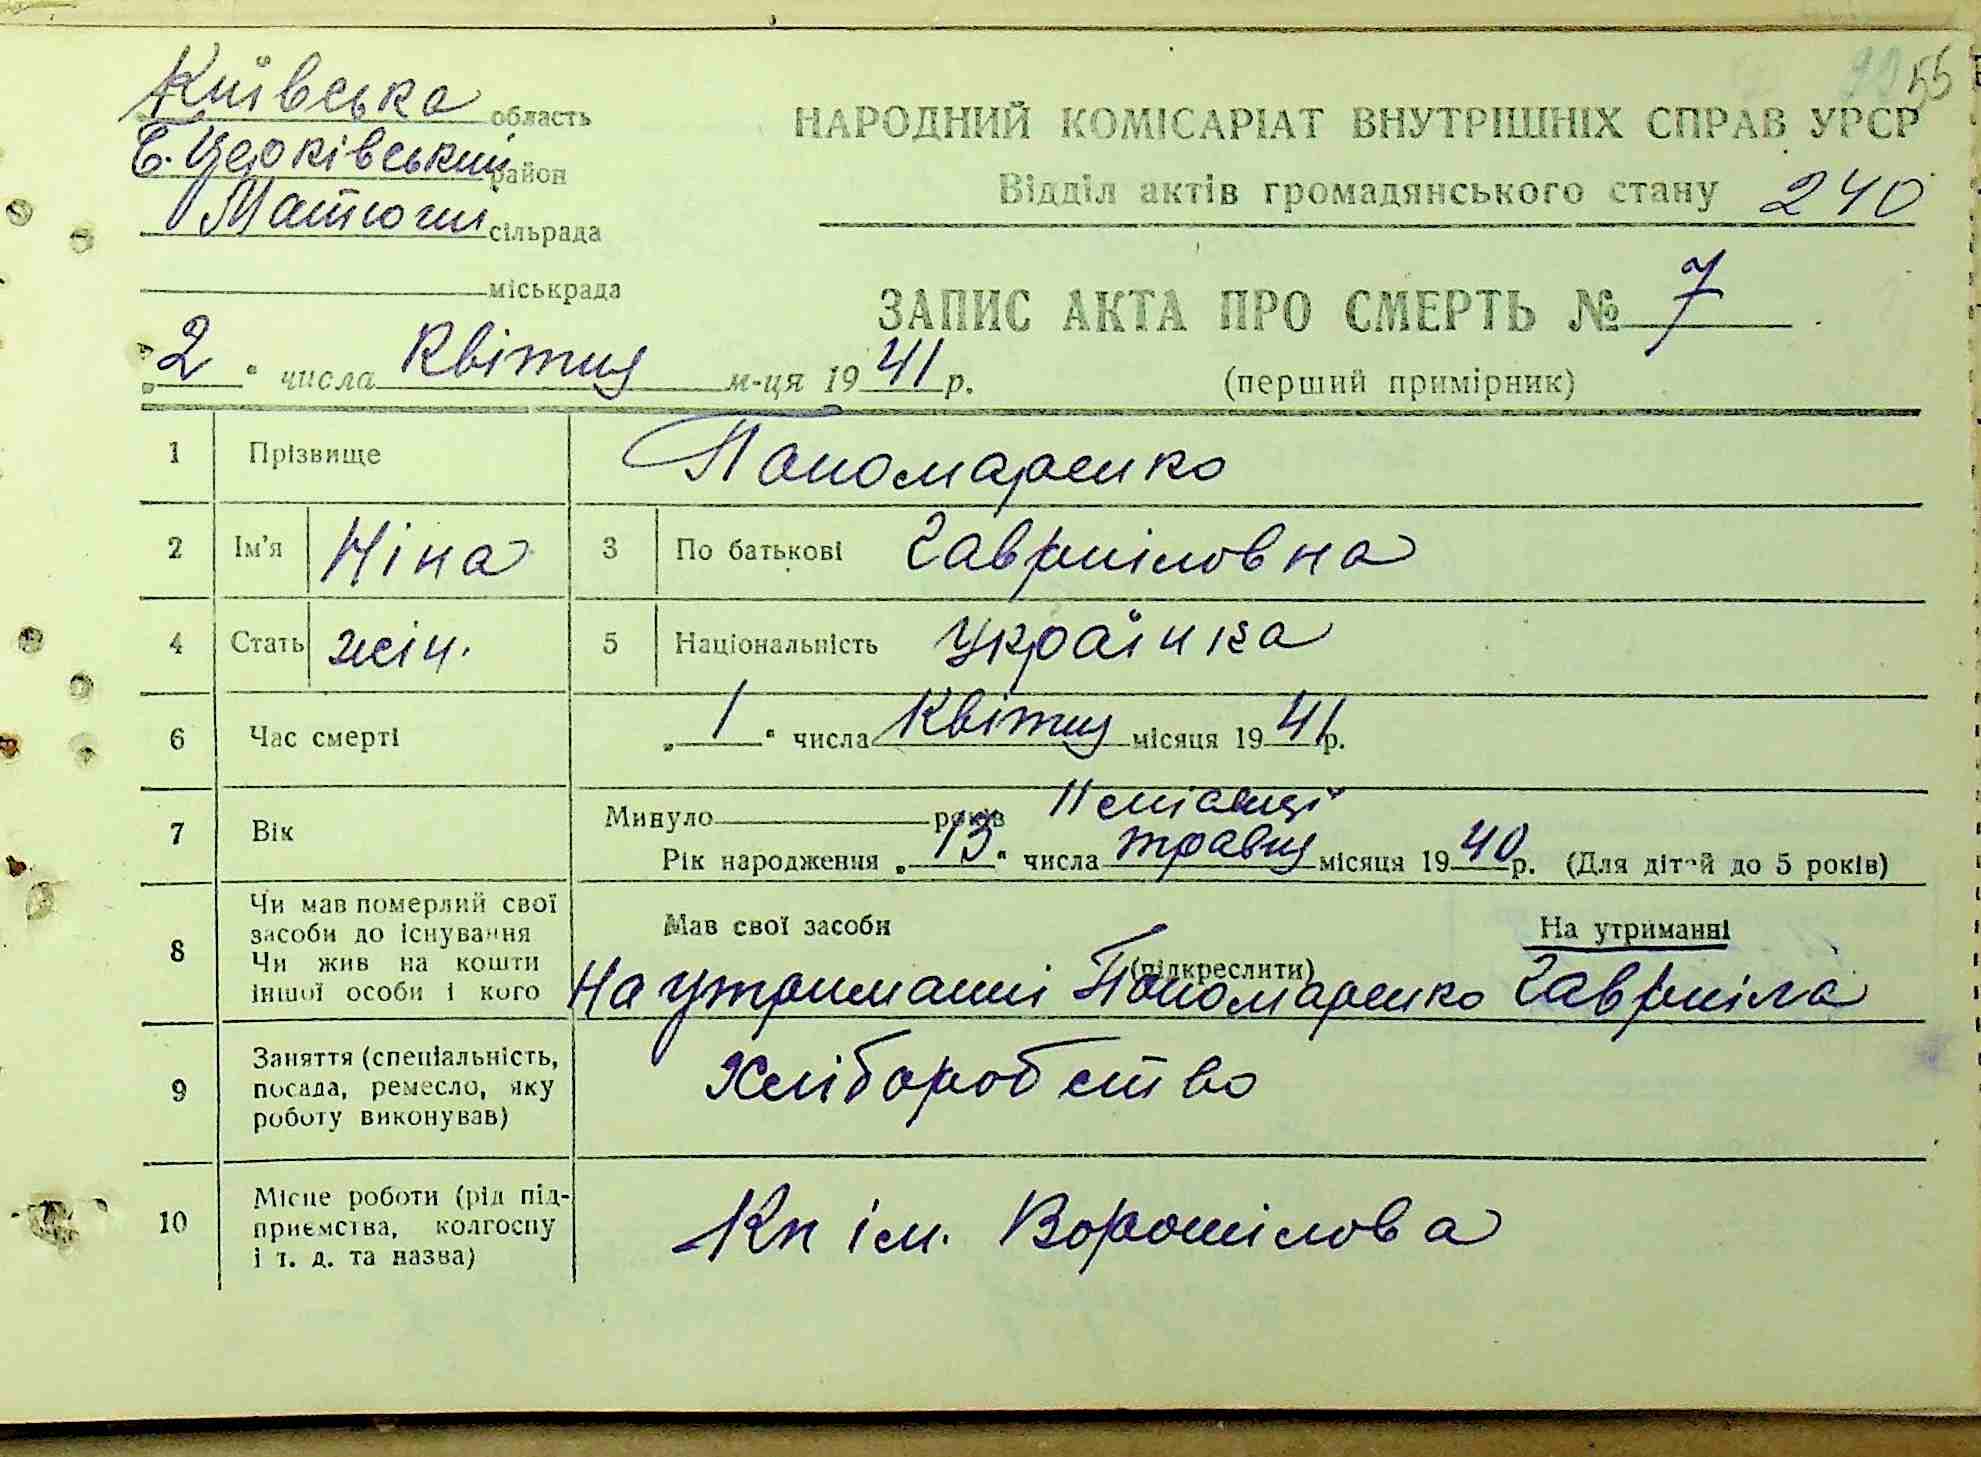 55
Київська область
НАРОДНИЙ КОМІСАРІАТ ВНУТРІШНІХ СПРАВ УРСР
Б. Церківський район
Відділ актів громадянського стану 240
Матюши сільрада
міськрада
ЗАПИС АКТА ПРО СМЕРТЬ № 7
„2“ числа Квітня м-ця 1941 р.
(перший примірник)
1 Прізвище Пономаренко
2 Ім'я Ніна 3 По батькові Гавриіловна
4 Стать жін. 5 Національність Українка
6 Час смерті „1“ числа Квітня місяця 1941 р.
7 Вік Минуло років 11 місяці
Рік народження „13“ числа травня місяця 1940 р. (Для дітей до 5 років)
8 Чи мав померлий свої засоби до існування
Чи жив на кошти іншої особи і кого
Мав свої засоби На утриманні
(підкреслити)
На утриманні Пономаренко Гавриіла
9 Заняття (спеціальність, посада, ремесло, яку роботу виконував) Хліборобство
10 Місце роботи (рід підприємства, колгоспу і т. д. та назва) Кп ім. Ворошілова